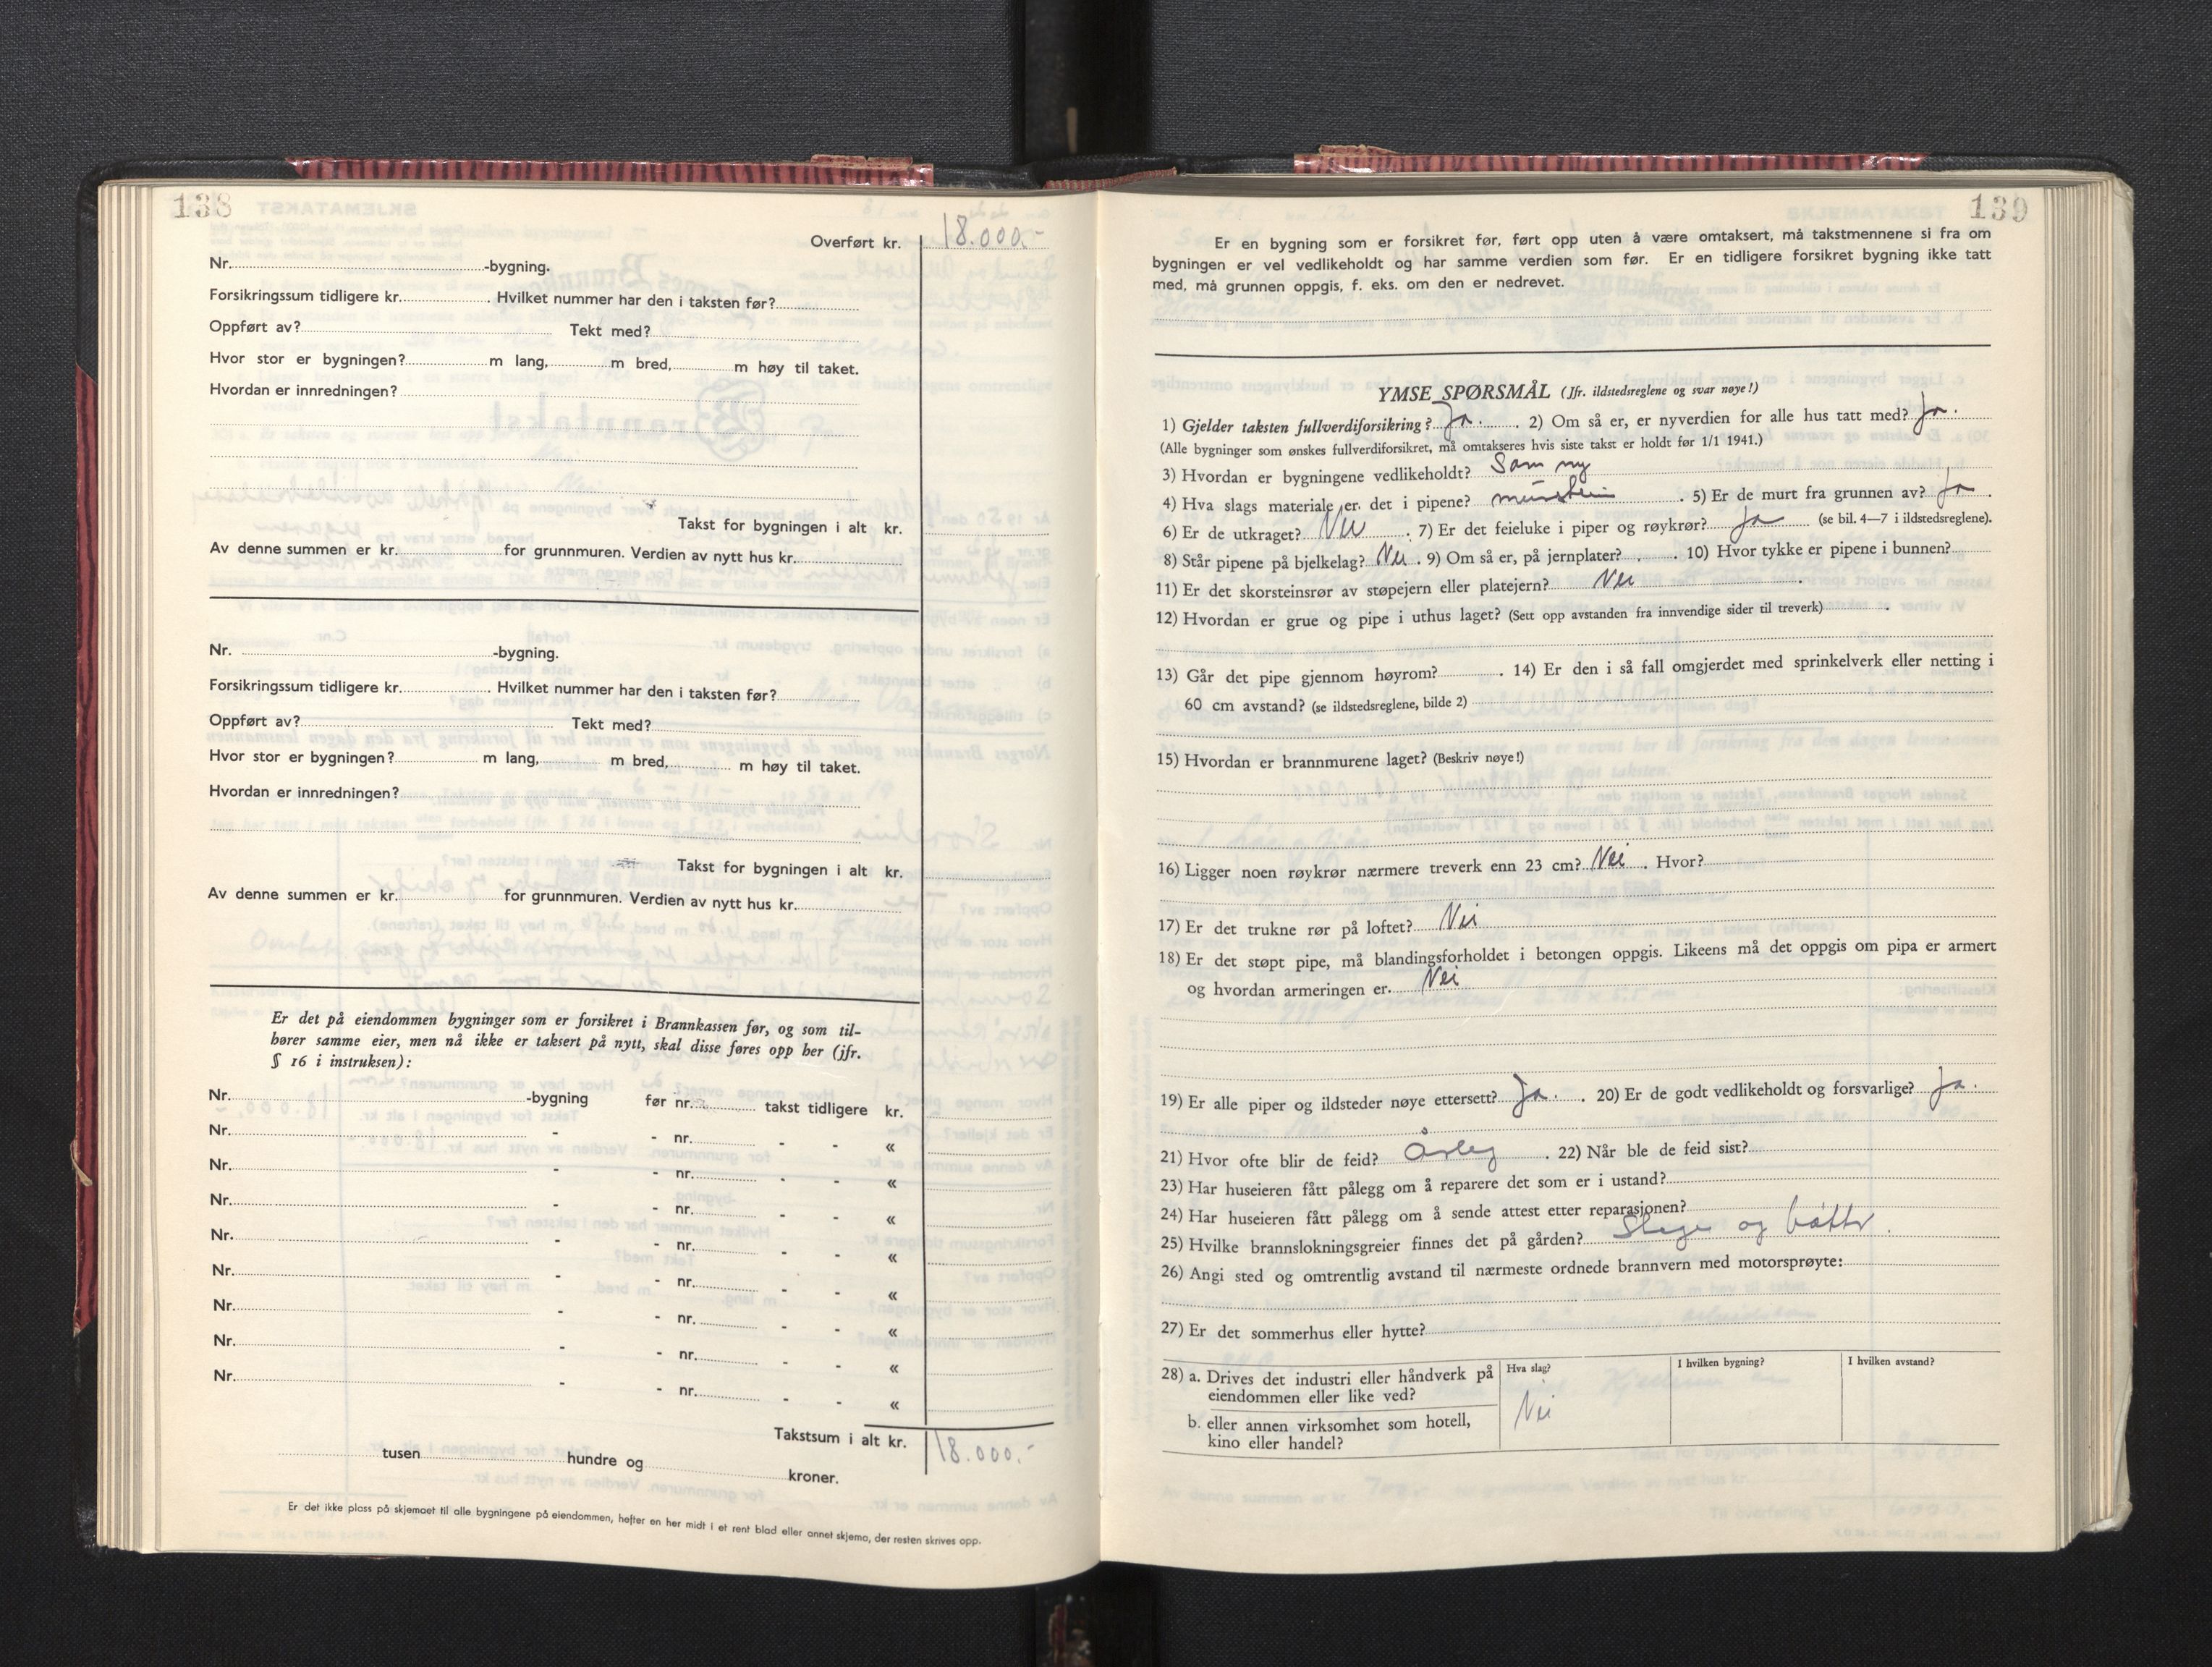 138
Overført kr. 18.000.-
Nr. -bygning.
Forsikringssum tidligere kr. . Hvilket nummer har den i taksten før?
Oppført av? Tekt med?
Hvor stor er bygningen? m lang, m bred, m høy til taket.
Hvordan er innredningen?
Takst for bygningen i alt kr.
Av denne summen er kr. for grunnmuren. Verdien av nytt hus kr.
Nr. -bygning.
Forsikringssum tidligere kr. . Hvilket nummer har den i taksten før?
Oppført av? Tekt med?
Hvor stor er bygningen? m lang, m bred, m høy til taket.
Hvordan er innredningen?
Takst for bygningen i alt kr.
Av denne summen er kr. for grunnmuren. Verdien av nytt hus kr.
Er det på eiendommen bygninger som er forsikret i Brannkassen før, og som til-
hører samme eier, men nå ikke er taksert på nytt, skal disse føres opp her (jfr.
§ 16 i instruksen):
Nr. -bygning før nr. takst tidligere kr.
Nr. - - nr. - - «
Nr. - - nr. - - «
Nr. - - nr. - - «
Nr. - - nr. - - «
Nr. - - nr. - - «
Nr. - - nr. - - «
Nr. - - nr. - - «
Nr. - - nr. - - «
Takstsum i alt kr. 18.000.-
tusen hundre og kroner.
Er det ikke plass på skjemaet til alle bygningene på eiendommen, hefter en her midt i et rent blad eller annet skjema, der resten skrives opp.
139
Er en bygning som er forsikret før, ført opp uten å være omtaksert, må takstmennene si fra om
bygningen er vel vedlikeholdt og har samme verdien som før. Er en tidligere forsikret bygning ikke tatt
med, må grunnen oppgis, f. eks. om den er nedrevet.
YMSE SPØRSMÅL (Jfr. ildstedsreglene og svar nøye!)
1) Gjelder taksten fullverdiforsikring? Ja. . 2) Om så er, er nyverdien for alle hus tatt med? Ja.
(Alle bygninger som ønskes fullverdiforsikret, må omtakseres hvis siste takst er holdt før 1/1 1941.)
3) Hvordan er bygningene vedlikeholdt? Som ny
4) Hva slags materiale er det i pipene? murstein . 5) Er de murt fra grunnen av? Ja .
6) Er de utkraget? Nei . 7) Er det feieluke i piper og røykrør? Ja (se bil. 4—7 i ildstedsreglene).
8) Står pipene på bjelkelag? Nei . 9) Om så er, på jernplater? . 10) Hvor tykke er pipene i bunnen?
11) Er det skorsteinsrør av støpejern eller platejern? Nei .
12) Hvordan er grue og pipe i uthus laget? (Sett opp avstanden fra innvendige sider til treverk) .
13) Går det pipe gjennom høyrom? . 14) Er den i så fall omgjerdet med sprinkelverk eller netting i
60 cm avstand? (se ildstedsreglene, bilde 2)
15) Hvordan er brannmurene laget? (Beskriv nøye!)
16) Ligger noen røykrør nærmere treverk enn 23 cm? Nei . Hvor?
17) Er det trukne rør på loftet? Nei
18) Er det støpt pipe, må blandingsforholdet i betongen oppgis. Likeens må det oppgis om pipa er armert
og hvordan armeringen er. Nei
19) Er alle piper og ildsteder nøye ettersett? Ja. . 20) Er de godt vedlikeholdt og forsvarlige? Ja.
21) Hvor ofte blir de feid? Årleg . 22) Når ble de feid sist?
23) Har huseieren fått pålegg om å reparere det som er i ustand?
24) Har huseieren fått pålegg om å sende attest etter reparasjonen?
25) Hvilke brannslokningsgreier finnes det på gården? Stege og bøtter.
26) Angi sted og omtrentlig avstand til nærmeste ordnede brannvern med motorsprøyte:
27) Er det sommerhus eller hytte?
28) a. Drives det industri eller håndverk på
eiendommen eller like ved?
b. eller annen virksomhet som hotell,
kino eller handel?
Hva slag?
Nei
I hvilken bygning?
I hvilken avstand?